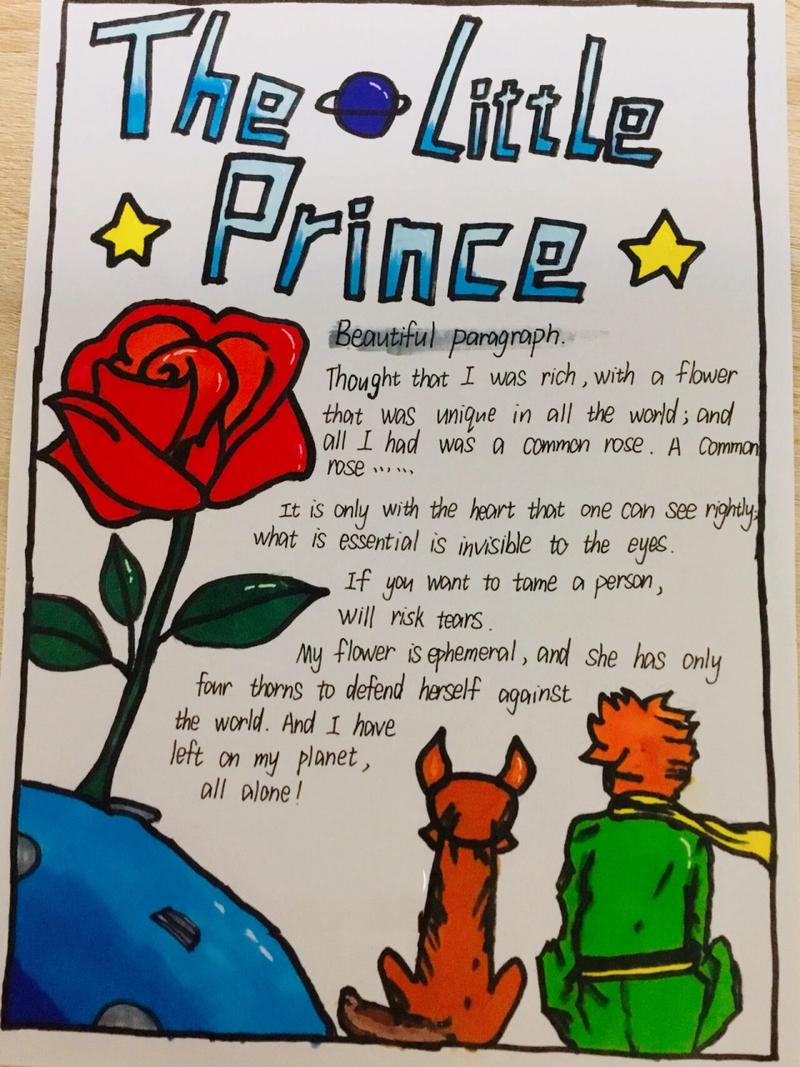 The Little
Prince
Beautiful paragraph.
Thought that I was rich, with a flower
that was unique in all the world; and
all I had was a common rose. A common
rose ……
It is only with the heart that one can see rightly;
what is essential is invisible to the eyes.
If you want to tame a person,
will risk tears.
My flower is ephemeral, and she has only
four thorns to defend herself against
the world. And I have
left on my planet,
all alone!